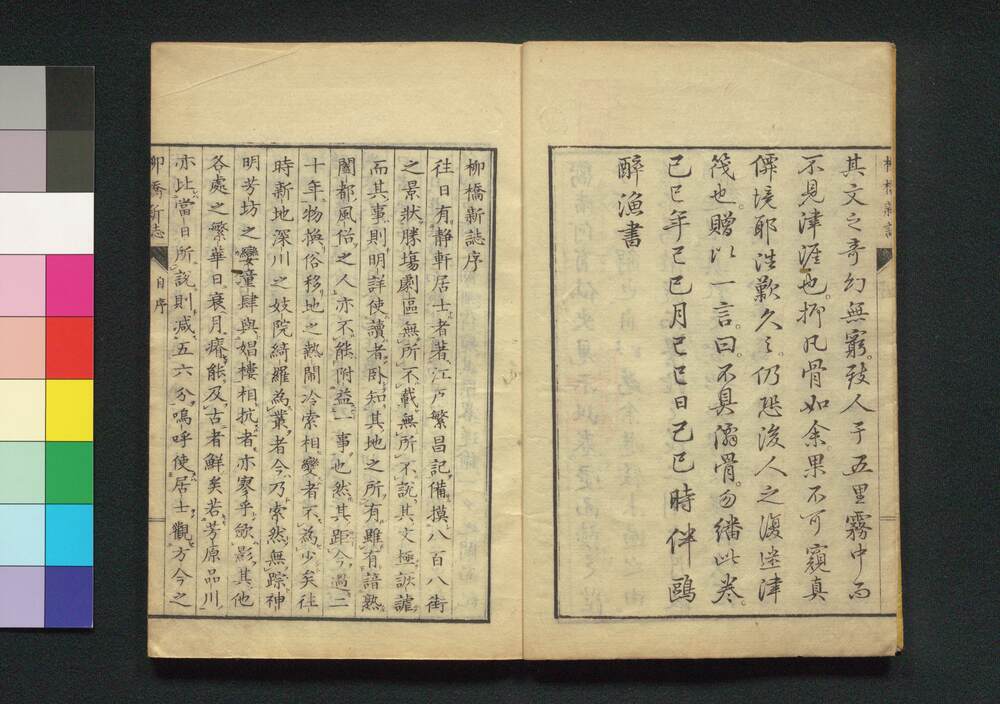 其文之奇幻無窮。致人于五里霧中而
不見津涯也。抑凡骨如余。果不可窺真
僊境耶。浩歎久之。仍恐後人之復迷津
筏也。贈以一言。曰。不具濳骨。勿繙此巻。
己巳年己巳月己巳日己巳時伴鷗
醉漁書
柳橋新誌序
往日有静軒居士者著江戸繁昌記備摸八百八街
之景状勝塲劇區無所不載無所不説其文極詼謔
而其事則明詳使讀者臥知其地之所有雖有諳熟
闔都風俗之人亦不能附益一事也然其距今過二
十年物換俗移地之熱閙冷索相變者不為少矣往
時新地深川之妓院綺羅為叢者今乃索然無踪神
明芳坊之孌童肆與娼樓相抗者亦寥乎歛影其他
各處之繁華日衰月瘠能及古者鮮矣若芳原品川
亦比當日所説則減五六分嗚呼使居士觀方今之
柳橋新志
自序